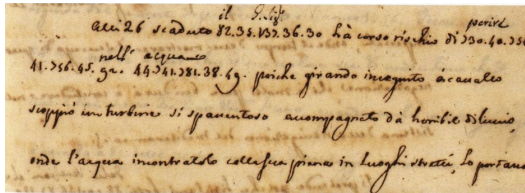 il
perire
Alli 26 scaduto 82.35. 36.30 hà corso rischio di 30.40.
nell' acqua
41.56.45. 44.41.81.38. poiche girando incognito à cavallo
scoppiò un turbine sì spauentoso accompagnato dà horribile diluuio,
onde l'acqua incontratolo colla sua piena in luoghi stretti, lo portaua